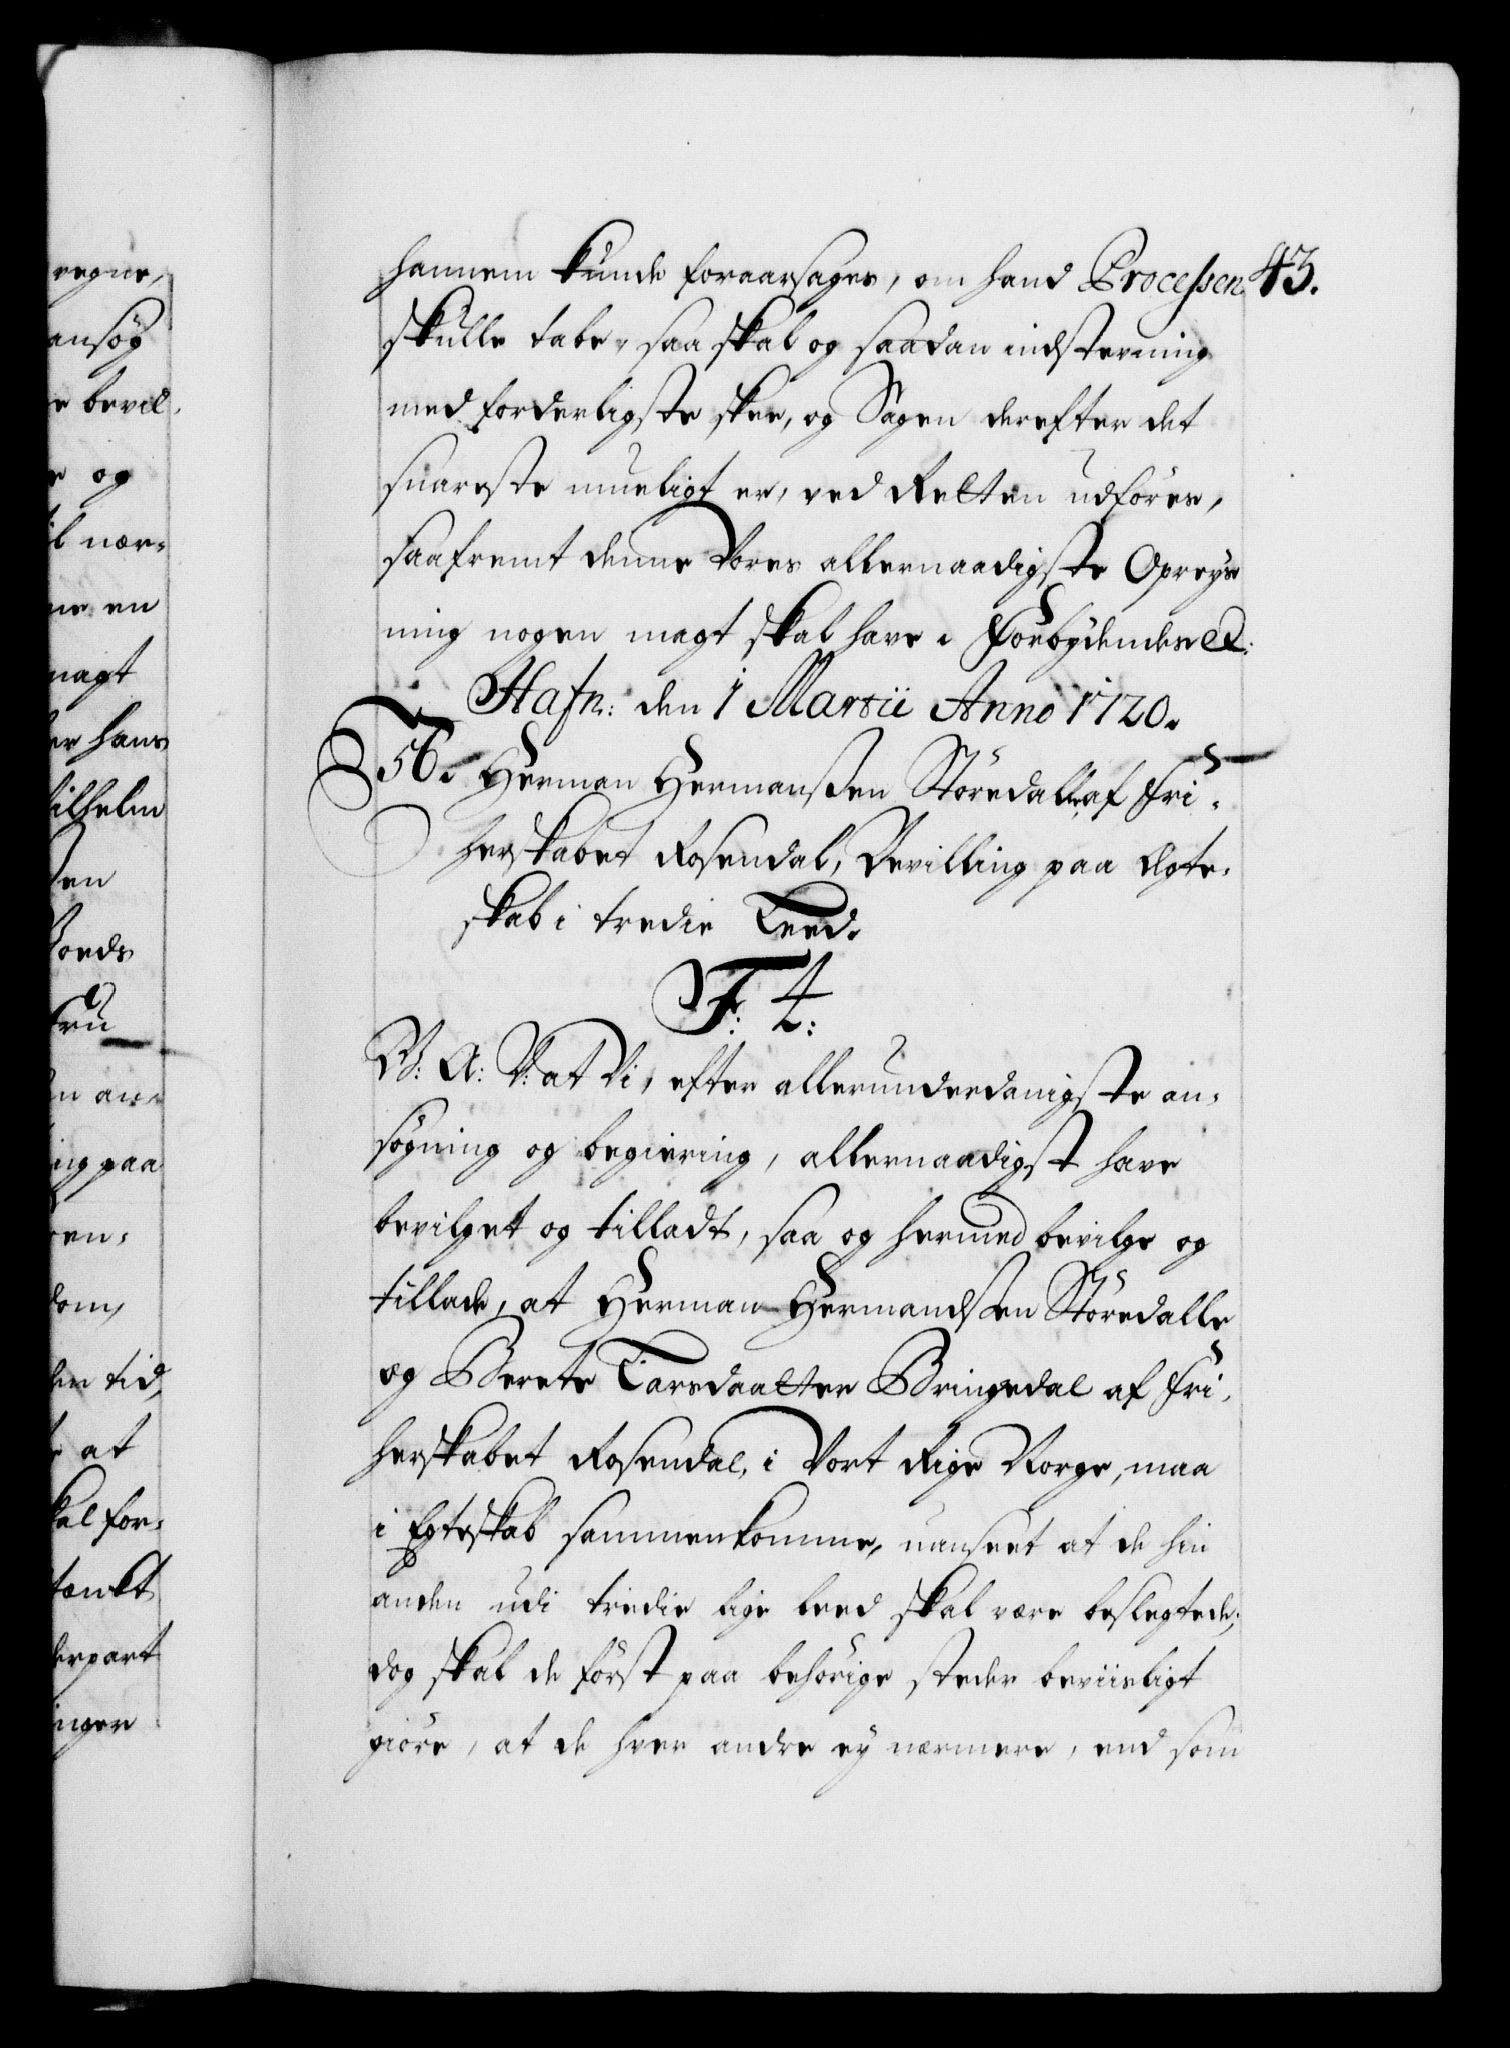 regne,
ansøg
e bevil.
e og
il nær-
ne en
magt
er hans
ilhelm
sen
fru
n an-
ing paa
en-
dom,
den tid,
e at
skal for-
tænkt
derpart
inger
hannem kunde foraarsages, om hand Processen 43.
skulle tabe, saa skal og saadan indstevning
med forderligste skee, og Sagen derefter det
snareste mueligt er, ved Retten udføres,
saafremt denne Vores allernaadigste Opreys
ning nogen magt skal have. Forbydendes etc:
Hafn: den 1 Martii Anno 1720.
56. Herman Hermansen Støredalle af Fri-
herskabet Rosendal, Bevilling paa Egte-
skab i tredie Leed.
F: 4:
G: A: V: at Vi, efter allerunderdanigste an-
søgning og begiering, allernaadigst have
bevilget og tilladt, saa og hermed bevilge og
tillade, at Herman Hermandsen Støredalle
og Berete Larsdaatter Bringedal af Fri-
herskabet Rosendal, i Vort Rige Norge, maa
i Egteskab sammenkomme, uanseet at de hin
anden udi tredie lige leed skal være beslegtede;
dog skal de først paa behørige steder beviisligt
giøre, at de hver andre ey nærmere, end som